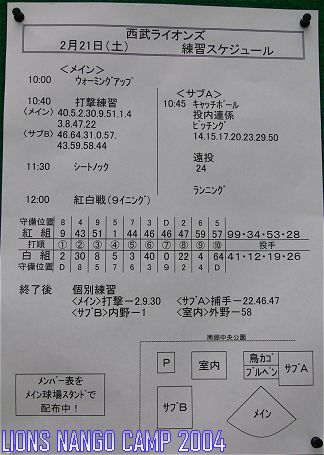 西武ライオンズ
2月21日(土) 練習スケジュール
<メイン>
10:00 ウォーミングアップ
10:40 打撃練習
(メイン) 40.5.2.30.9.51.1.4
3.8.47.22
(サブB) 46.64.31.0.57.
43.59.58.44
11:30 シートノック
12:00 紅白戦(9イニング)
<サブA>
10:45 キャッチボール
投内連係
ピッチング
14.15.17.20.23.29.50
遠投
24
ランニング
守備位置 8 4 9 5 3 7 D 2 6 5
紅組 9 43 51 1 44 46 46 47 59 57 99・34・53・28
打順 ① ② ③ ④ ⑤ ⑥ ⑦ ⑧ ⑨ ⑩ 投手
白組 2 30 8 5 3 40 0 22 4 64 41・12・19・26
守備位置 D 8 5 7 6 3 9 2 4 D
終了後 個別練習
<メイン>打撃ー2.9.30 <サブA>捕手ー22.46.47
<サブB>内野ー1 <室内>外野ー58
南郷中央公園
P
室内
鳥カゴ
ブルペン
サブA
サブB
メイン
メンバー表を
メイン球場スタンドで
配布中!
LIONS NANGO CAMP 2004